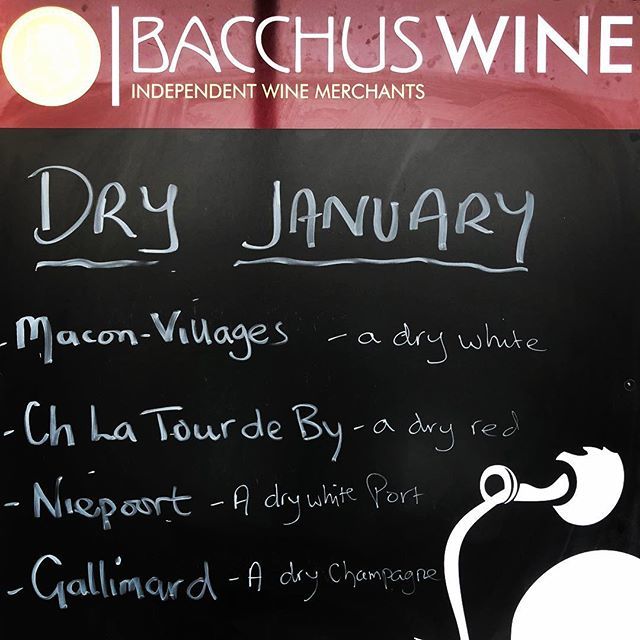 BACCHUS WINE
INDEPENDENT WINE MERCHANTS
DRY JANUARY
- Macon-Villages - a dry white
- Ch La Tour de By - a dry red
- Niepoort - A dry white Port
- Gallimard - A dry Champagne